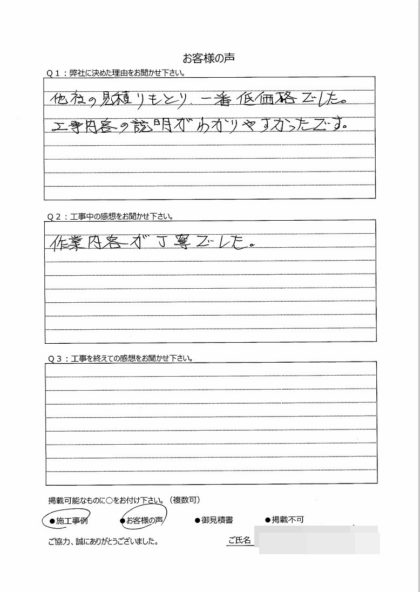 お客様の声
Q1：弊社に決めた理由をお聞かせ下さい。
他社の見積りもとり、一番低価格でした。
工事内容の説明がわかりやすかったです。
Q2：工事中の感想をお聞かせ下さい。
作業内容が丁寧でした。
Q3：工事を終えての感想をお聞かせ下さい。
掲載可能なものに○をお付け下さい。（複数可）
●施工事例 ●お客様の声 ●御見積書 ●掲載不可
ご協力、誠にありがとうございました。 ご氏名